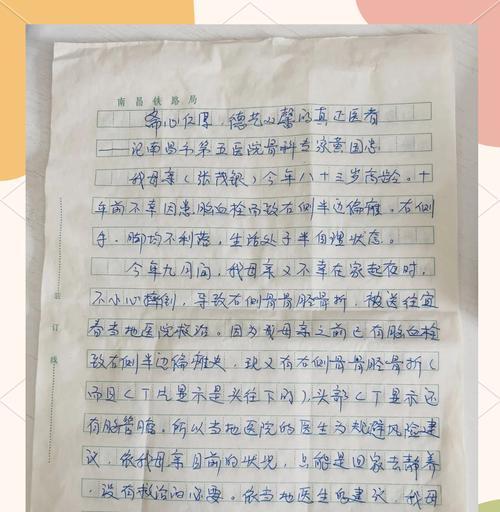 南昌铁路局
心仁厚，德艺双馨的真正医者
——记南昌市第五医院骨科专家黄国忠
我母亲（张茂银）今年八十三岁高龄。十
年前不幸因患脑血栓而致右侧半边偏瘫。右侧
手、脚均不利落，生活处于半自理状态。
今年九月间，我母亲又不幸在家起夜时，
不小心摔倒，导致右侧骨骨胫骨折，被送往宜
春当地医院救治。因为我母亲之前已有脑血栓
致右侧半边偏瘫史，现又有右侧骨骨胫骨折（
而且CT片显示是头往下的），头部CT显示还
有脑管瘤。所以当地医院的医生为规避风险建
议，依我母亲目前的状况，只能是回家去静养
，没有救治的必要。依当地医生的建议，我母
装
订
线